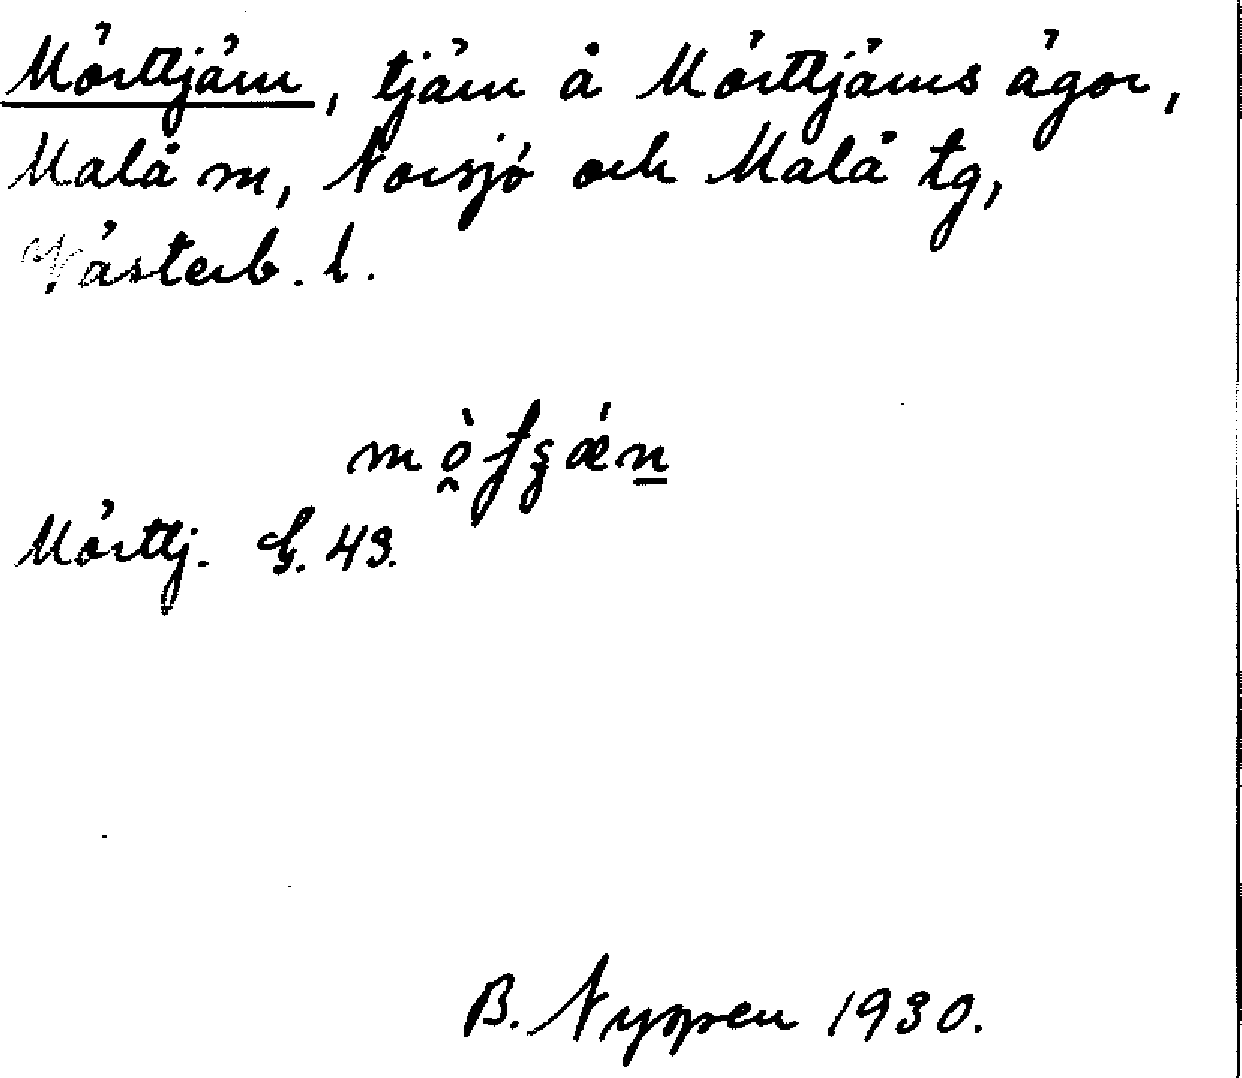 Mörttjärn, tjärn å Mörttjärns ägor,
Malå sn, Norsjö och Malå tg,
Västerb. l.
Mörttj. S. 43.
B. Nygren 1930.